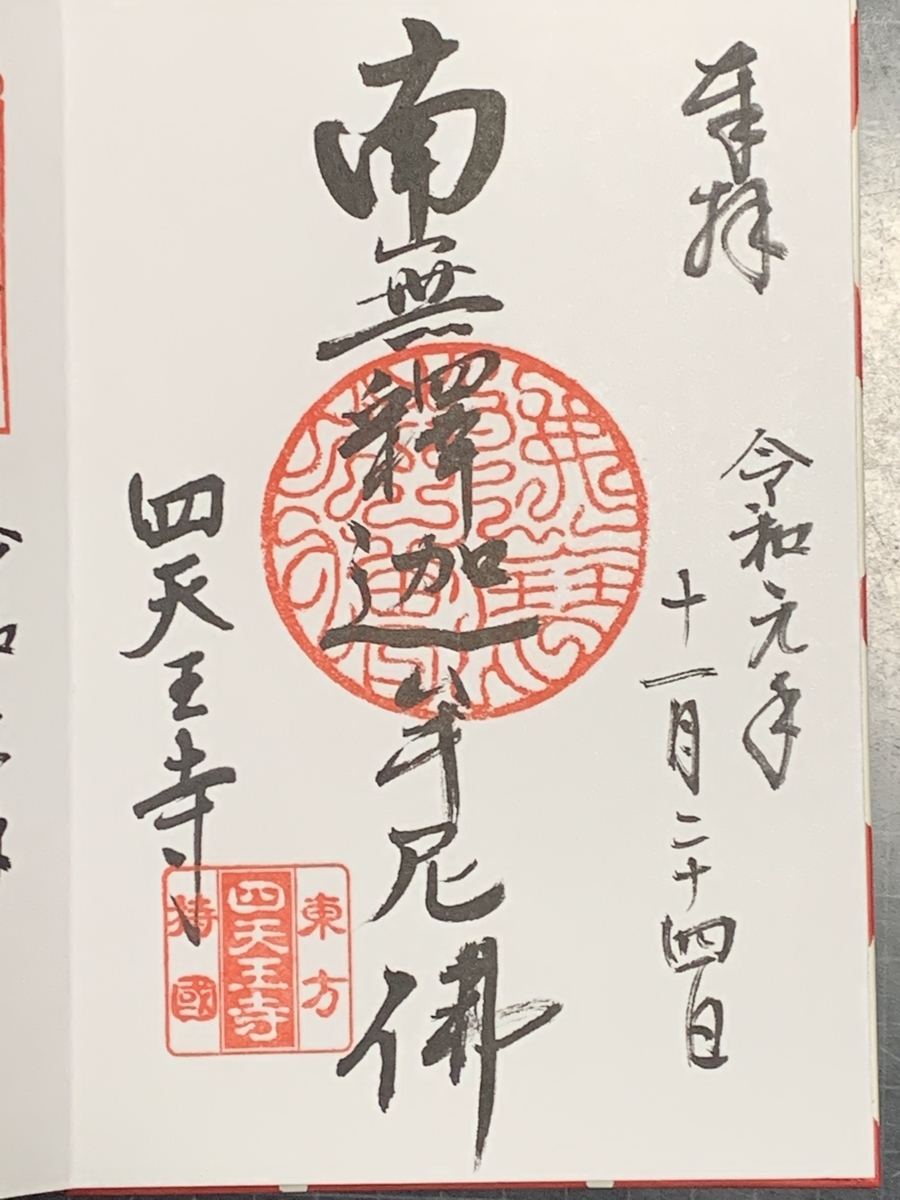 奉拝
令和元年
十一月二十四日
南無釋迦牟尼佛
四天王寺
東方
四天王寺
持國